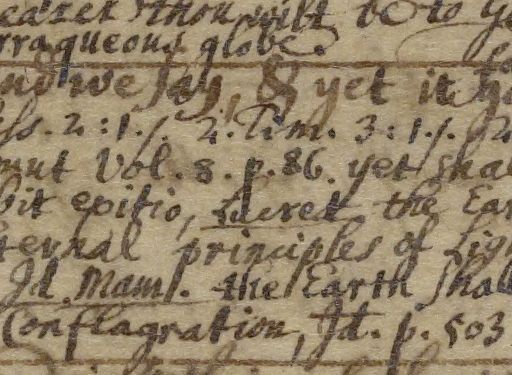 thou wilt be to
rraqueous globe.
nd we say, & yet it
ss. 2:1. 2. Tim. 3:1.
Vol. 8. p. 86. yet shal
bit exitio, Lucret the Ear
ternal principles of Lig
Id. Man. the Earth shal
Conflagration, Id. p. 503